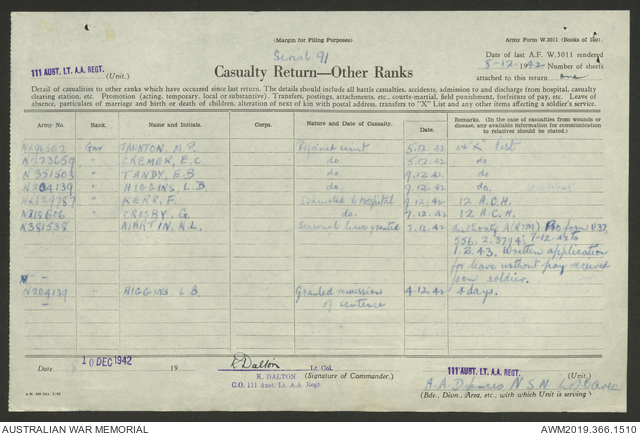 (Margin for Filing Purposes)
Army Form W.3011 (Books of 100)
Serial 91
Date of last A.F. W.3011 rendered
111 AUST. LT. A.A. REGT. (Unit.)
8-12-1942 Number of sheets
Casualty Return—Other Ranks
attached to this return one
Detail of casualties to other ranks which have occurred since last return. The details should include all battle casualties, accidents, admission to and discharge from hospital, casualty
clearing station, etc. Promotion (acting, temporary, local or substantive). Transfers, postings, attachments, etc., courts-martial, field punishment, forfeiture of pay, etc. Leave of
absence, particulars of marriage and birth or death of children, alteration of next of kin with postal address, transfers to "X" List and any other items affecting a soldier's service.
Army No. Rank. Name and Initials. Corps. Nature and Date of Casualty. Date. Remarks. (In the case of casualties from wounds or disease, any available information for communication to relatives should be stated.)
Gnr TAUNTON, M.P. Rejoined unit 5.12.42 ex X list
N223659 " CREMER, E.C do. 5.12.42 do
N351503 " TANDY, E.B do. 9.12.42 do
N204139 " HIGGINS, L.B do. 9.12.42 do.
" KERR, F. Evacuated to hospital 9.12.42 12 A.C.H.
" CROSBY, G. do. 7.12.42 12 A.C.H.
N381538 " MARTIN, R.L. Seasonal leave granted 7.12.42 Authority A(RTM)
7-12-42 to
1.2.43. Written application
for leave without pay received
from soldier.
N204139 " HIGGINS L.B Granted remission 4.12.42 4 days.
of sentence
Date 10 DEC 1942 19 K Dalton Lt. Col.
K. DALTON (Signature of Commander.)
C.O. 111 Aust. Lt. A.A. Regt.
111 AUST. LT. A.A. REGT. (Unit.)
A.A. Defences N.S.W. L of C Area
(Bde., Divn., Area, etc., with which Unit is serving)
AUSTRALIAN WAR MEMORIAL
AWM2019.366.1510